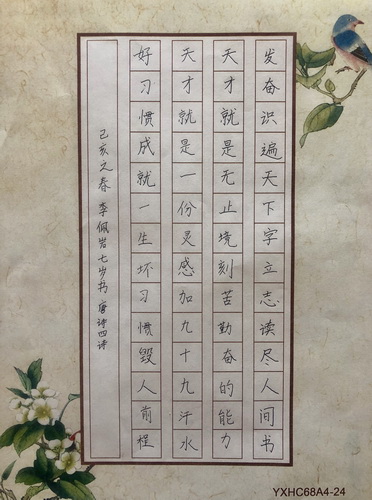 发奋识遍天下字立志读尽人间书
天才就是无止境刻苦勤奋的能力
天才就是一份灵感加九十九汗水
好习惯成就一生坏习惯毁人前程
己亥之春 李佩岩七岁书 唐诗四诗
YXHC68A4-24